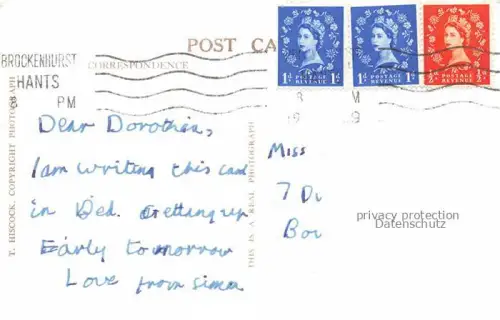 POST CA
BROCKENHURST
HANTS
8 PM
CORRESPONDENCE
T. HISCOCK, COPYRIGHT PHOTOGRAPH
THIS IS A REAL PHOTOGRAPH
1D POSTAGE REVENUE 1D
1D POSTAGE REVENUE 1D
½D POSTAGE REVENUE ½D
Dear Dorothea,
I am writing this card
in Bed. Getting up
Early tomorrow
Love from Simon
Miss
7 Du
Bou
privacy protection
Datenschutz